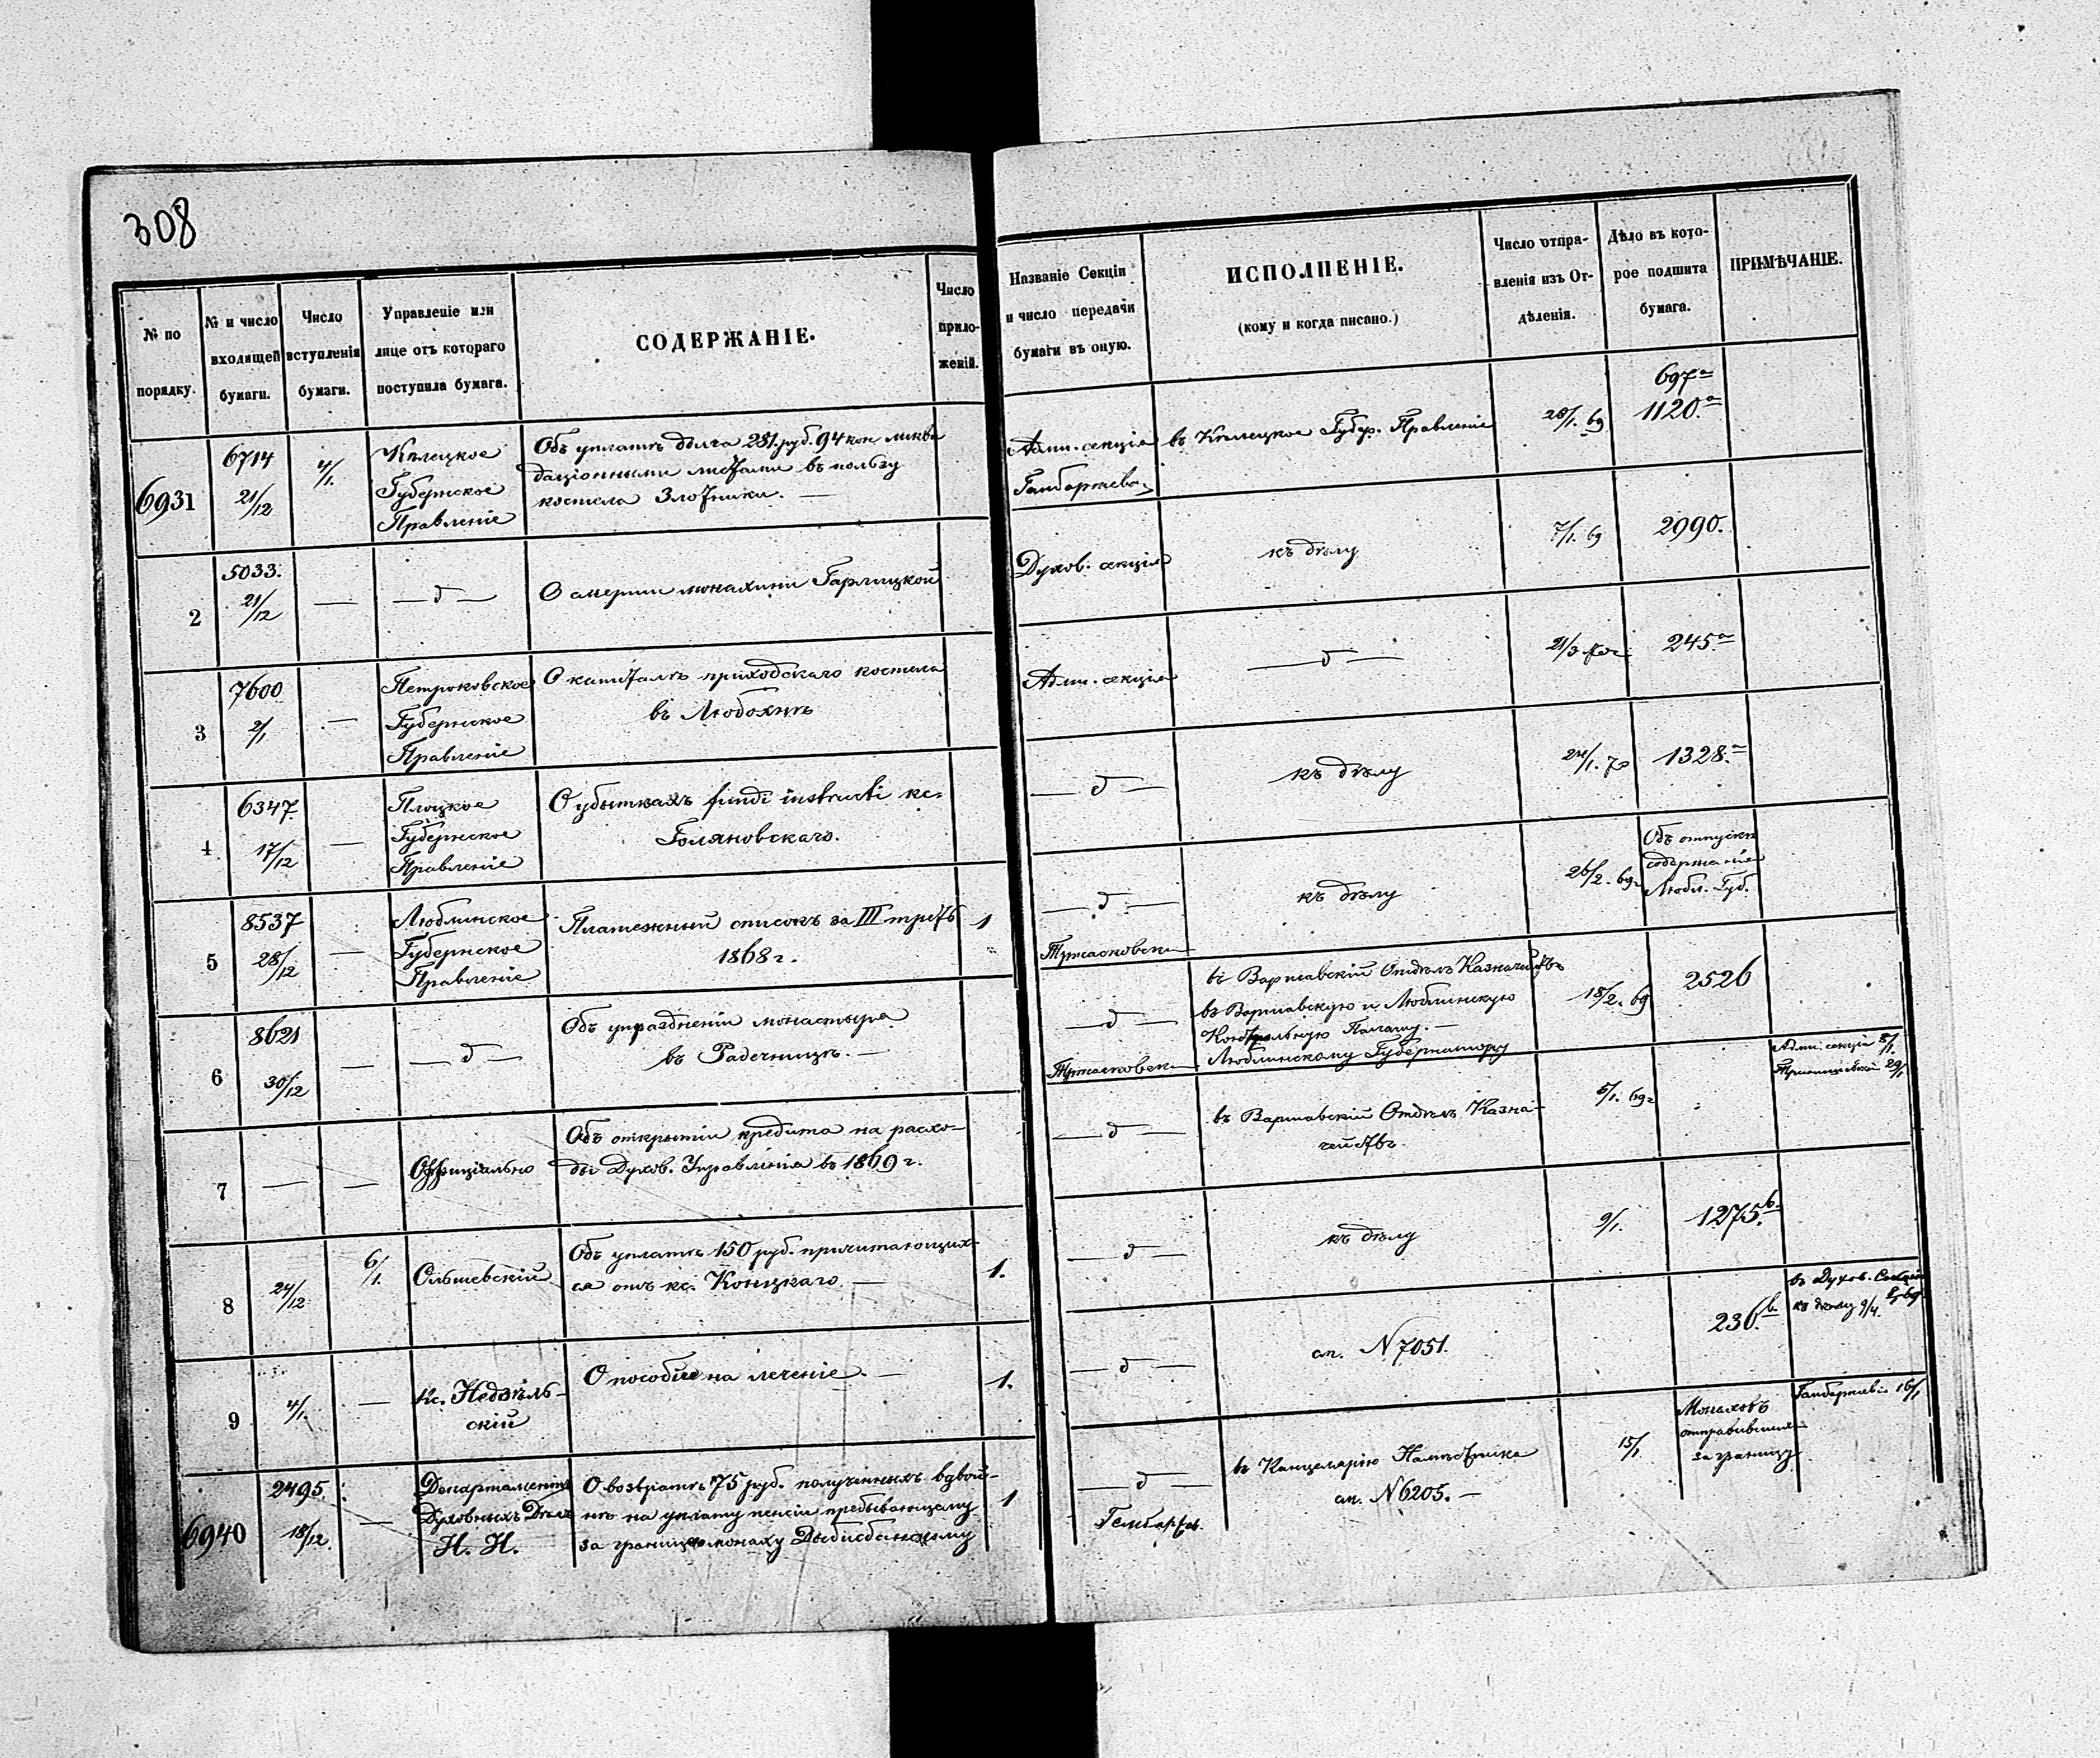 308
№ по порядку.
№ и число входящей бумаги.
Число вступленія бумаги.
Управленіе или лице отъ котораго поступила бумага.
СОДЕРЖАНІЕ.
Число приложеній.
Названіе Секціи и число передачи бумаги въ оную.
ИСПОЛНЕНІЕ.
(кому и когда писано.)
Число отправленія изъ Отдѣленія.
Дѣло въ которое подшита бумага.
ПРИМѢЧАНІЕ.
6931
6714
21/12
4/1.
Кѣлецкое
Губернское
Правленіе
Объ уплатѣ долга 281 руб. 94 коп ликви
даціонными листами въ пользу
костела Злотники. —
Адми. секція
въ Кѣлецкое Губер. Правленіе
28/1. 69
697а
1120.а
2
5033.
21/12
—
— д —
О смерти монахини Гарлицкой
Духов. секція
къ дѣлу
7/1. 69
2990.
3
7600
2/1
—
Петроковское
Губернское
Правленіе
О капиталѣ приходскаго костела
въ Любохнѣ
Адми. секція
— д —
21/3
245.а
4
6347
17/12
—
Плоцкое
Губернское
Правленіе
О убыткахъ fundi instructi кс.
Голяновскаго.
— д —
къ дѣлу
24/1. 70
1328.а
5
8537
28/12
—
Люблинское
Губернское
Правленіе
Платежный списокъ за III треть
1868 г.
1
— д —
къ дѣлу
26/2. 69 г
Объ отпускѣ
содержанія
Любл. Губ.
6
8621
30/12
—
— д —
Объ упраздненіи монастыря
въ Радечницѣ. —
— д —
въ Варшавскій Отдѣлъ Казначействъ
въ Варшавскую и Люблинскую
Контрольную Палату. —
Люблинскому Губернатору
18/2. 69
2526
7
—
—
Оффиціально
Объ открытіи кредита на расхо-
ды Духов. Управленія въ 1869 г.
— д —
въ Варшавскій Отдѣлъ Казна-
чействъ.
5/1. 69 г
Адми. секція 8/1.
29/1
8
24/12
6/1.
Ольшевскій
Объ уплатѣ 150 руб. причитающих-
ся отъ кс. Коницкаго —
1.
— д —
къ дѣлу
9/1.
1275.b
9
4/1.
—
Кс. Недзѣль-
скій
О пособіи на леченіе. —
1.
— д —
ст. N 7051.
236.b
въ Духов. Секцію
къ дѣлу 9/4. 69
6940
2495
18/12
—
Департаментъ
Духовныхъ Дѣлъ
И. И.
О возвратѣ 75 руб. полученныхъ вдвой-
нѣ на уплату пенсіи пребывающему
за границею монаху
1
— д —
въ Канцелярію Намѣстника
ст. N 6205. —
15/1
Монаховъ
отправившихся
за границу
16/1